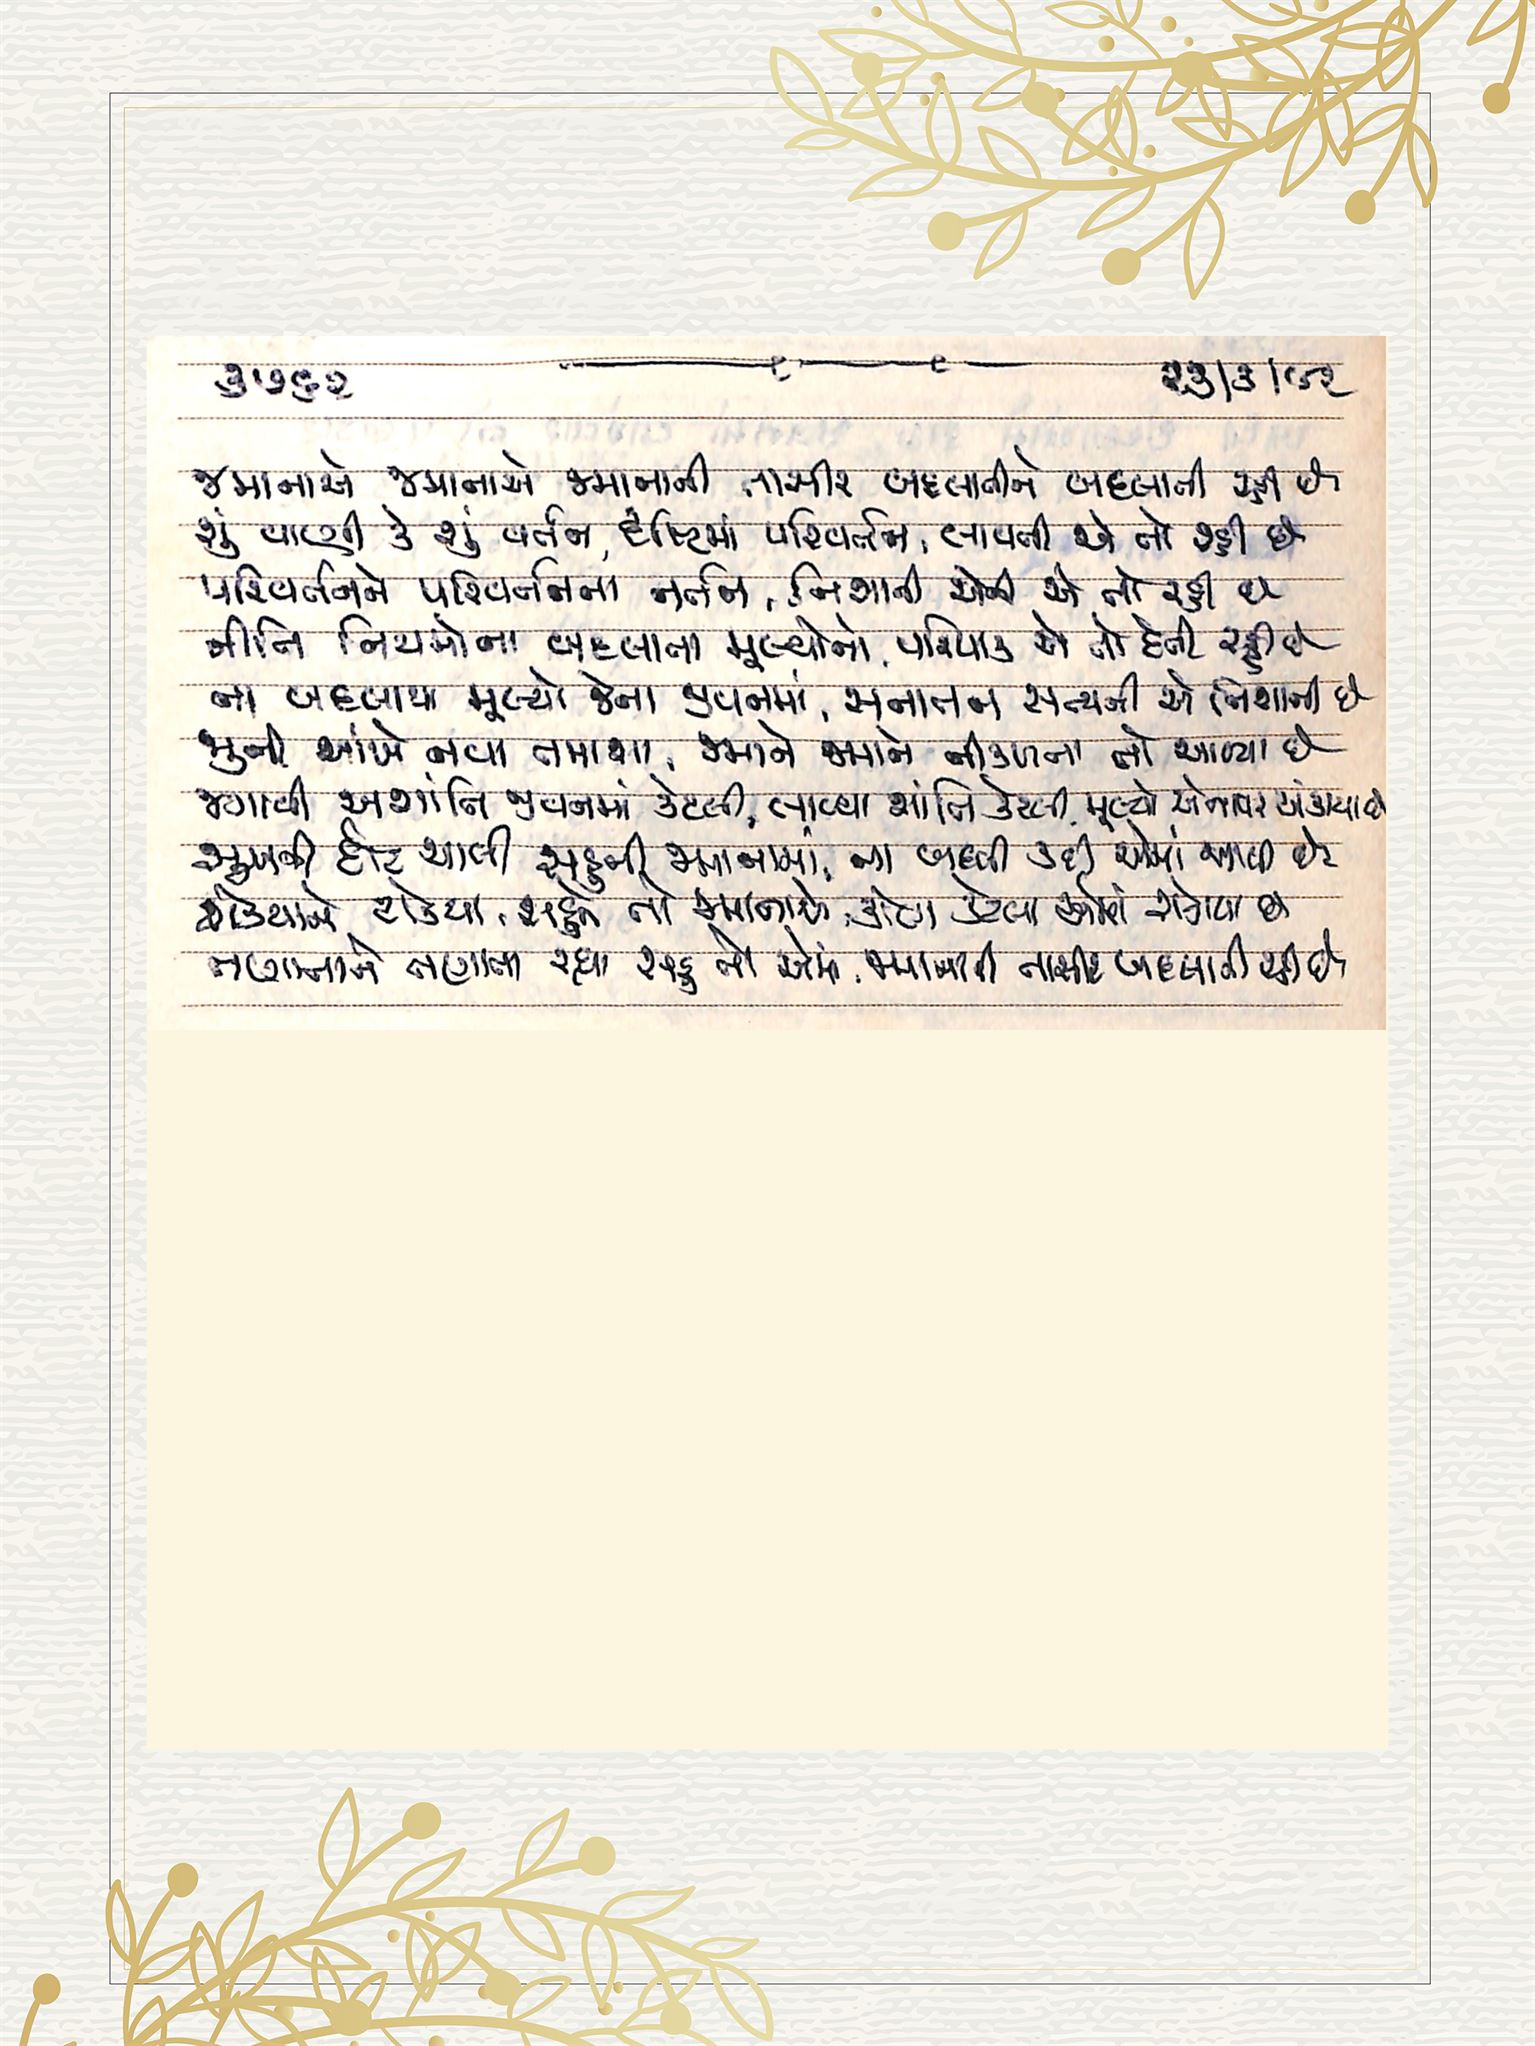 ૩૭૬૨ ૨૩/૩/૯૨
જમાનાએ જમાનાએ જમાનાની તાસીર બદલાતીને બદલાતી રહી છે
શું વાણી કે શું વર્તન, દૃષ્ટિમાં પરિવર્તન, લાવતી એ તો રહી છે
પરિવર્તનને પરિવર્તનના નર્તન, નિશાની એની એ તો રહી છે
નીતિ નિયમોના બદલાતા મૂલ્યોનો, પરિપાક એ તો દેતી રહી છે
ના બદલાયા મૂલ્યો જેના જીવનમાં, સનાતન સત્યની એ નિશાની છે
જુની આંખે નવા તમાશા, જમાને જમાને નીકળતા તો આવ્યા છે
જગાવી અશાંતિ જીવનમાં કેટલી, લાવ્યા શાંતિ કેટલી, મૂલ્યો એનાપર અંકાયા છે
સુખની દોટ ચાલી સહુની જમાનામાં, ના બદલી કદી એમાં આવી છે
તો જમાનાએ, કેટલા
તણાતાને તણાતા રહ્યા સહુ તો એમાં, જમાનાની તાસીર બદલાતી રહી છે